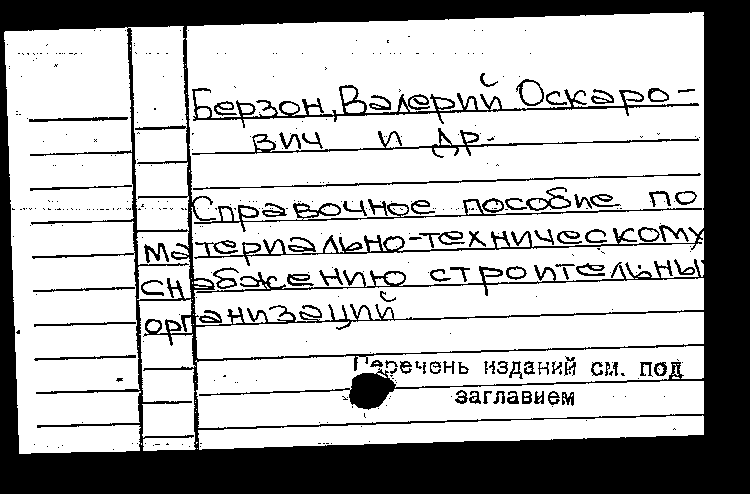 Берзон, Валерий Оскаро-
вич и др.
Справочное пособие по
материально-техническому
снабжению строительны
организаций
Перечень изданий см. под
заглавием